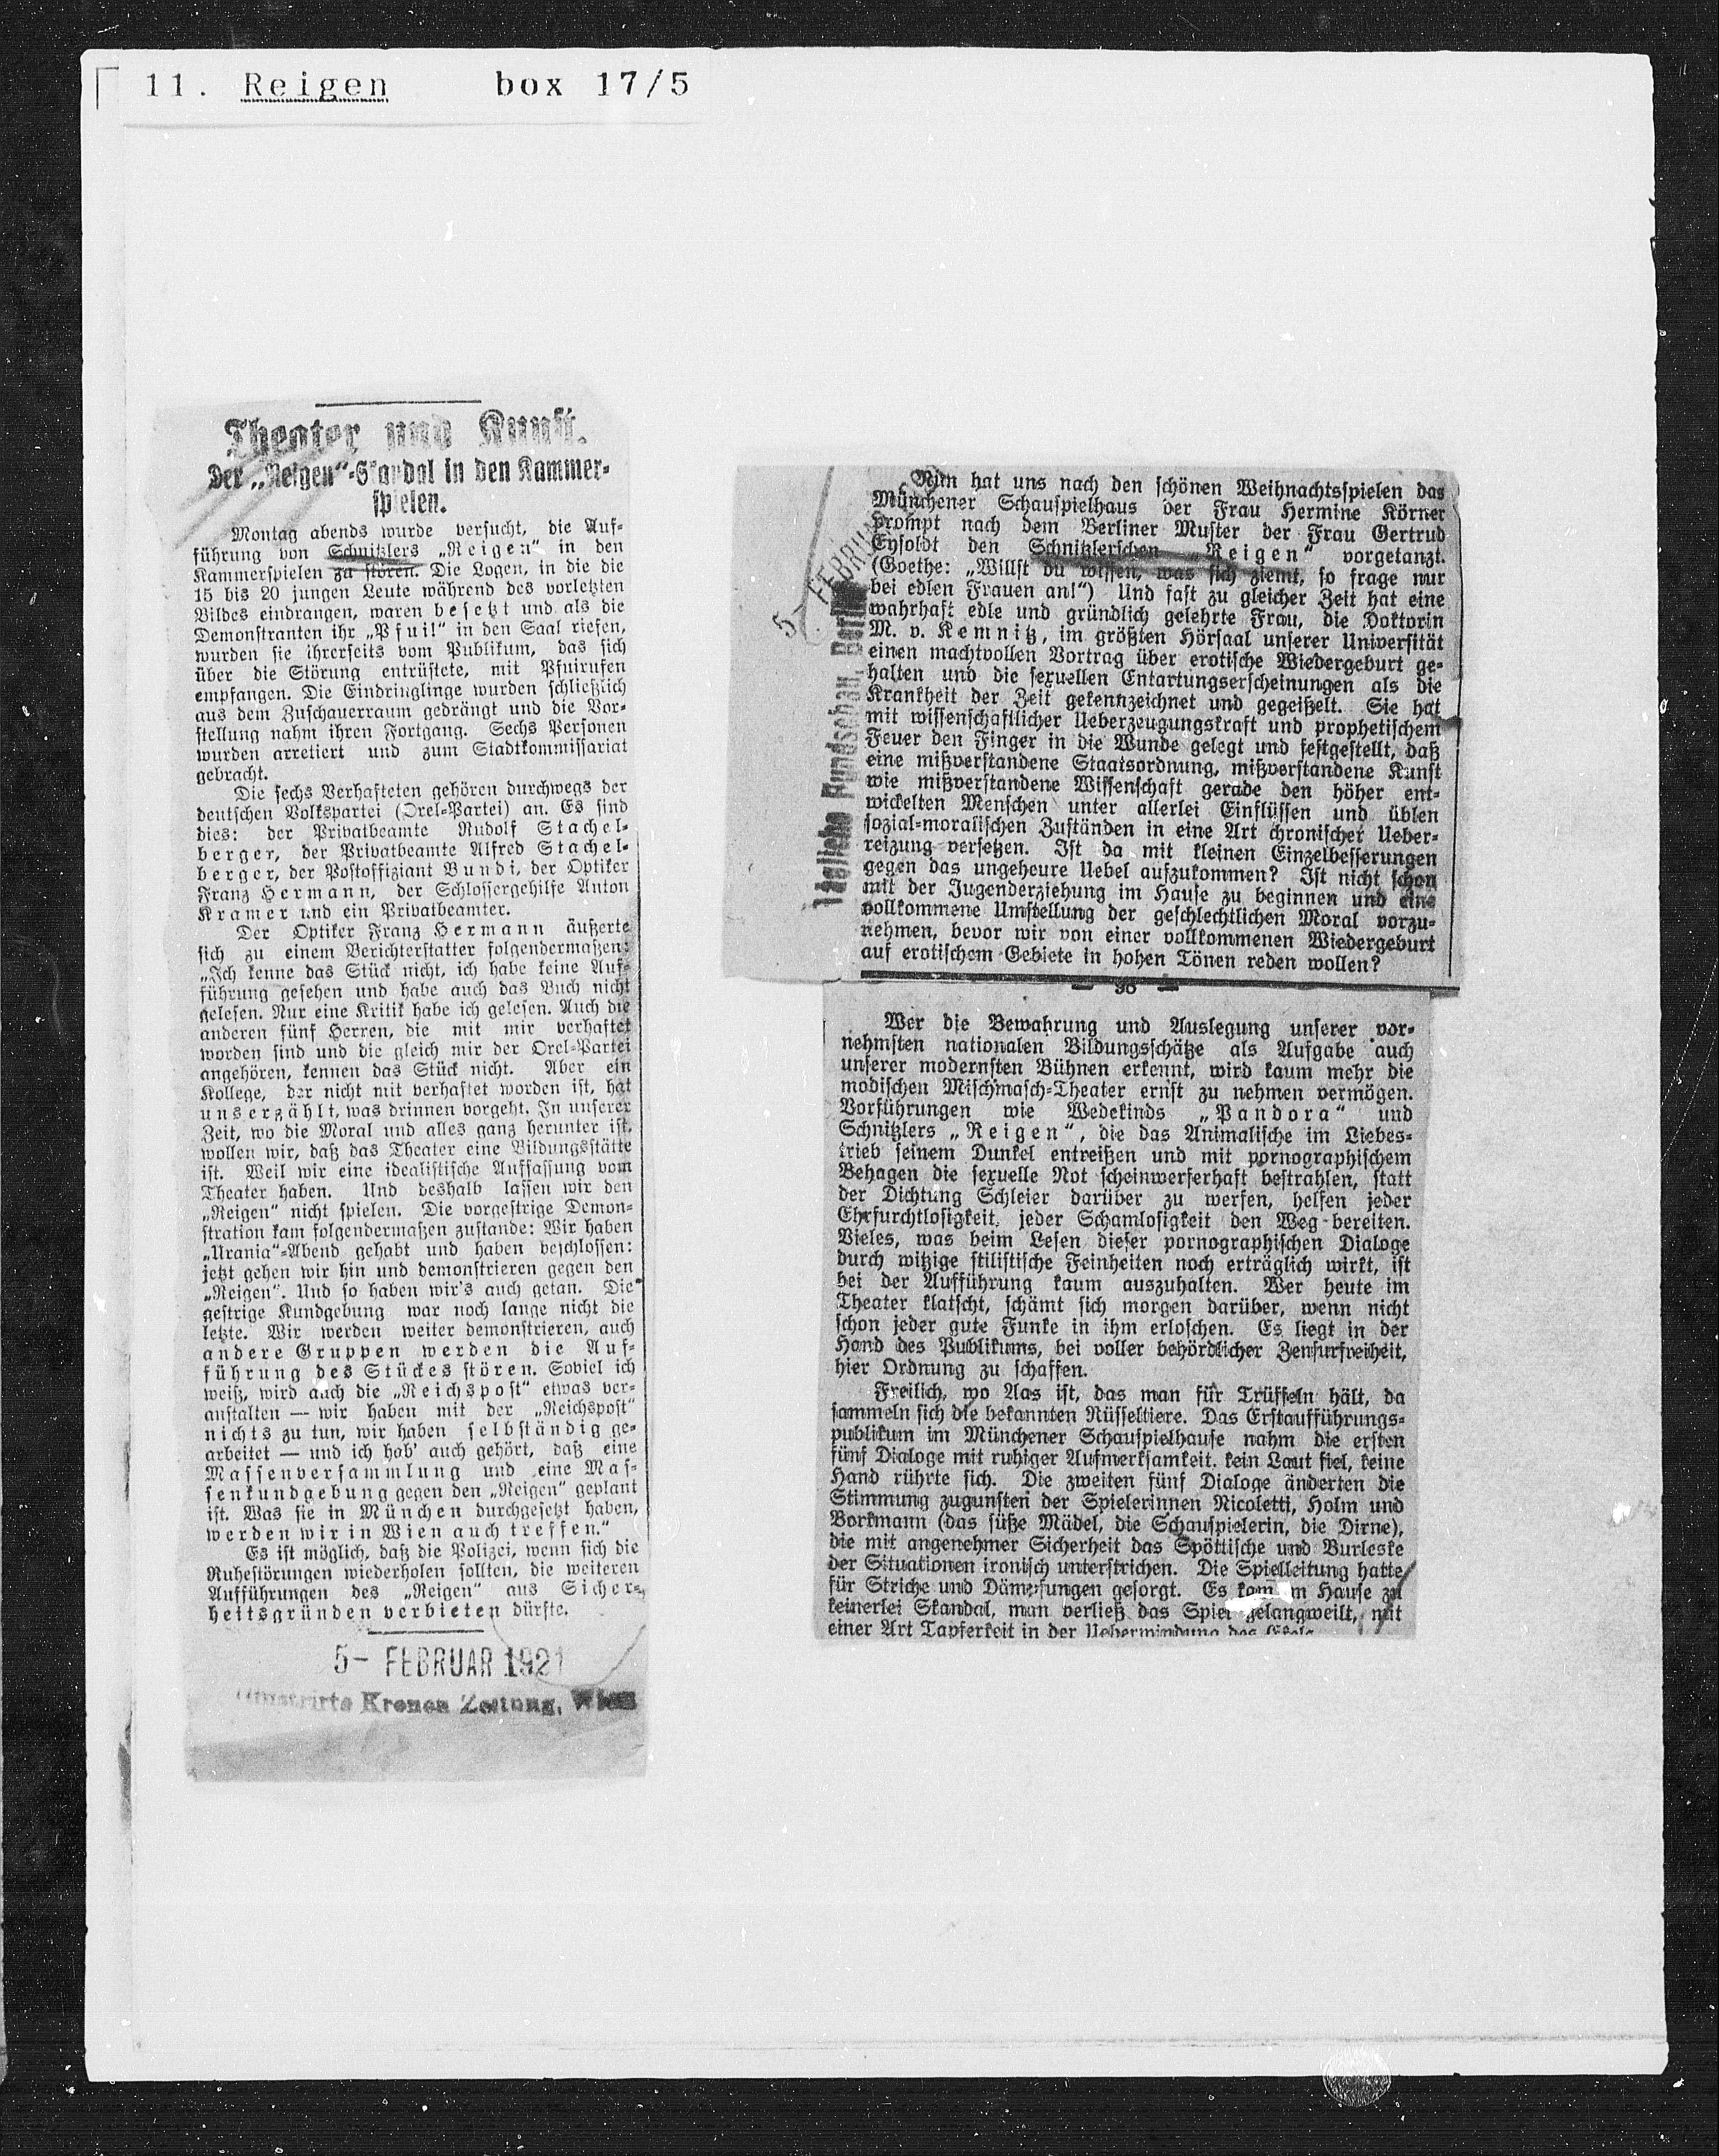 11. Reigen box 17/5
Theater und Kunst.
Der „Reigen“-Skandal in den Kammer-
spielen.
Montag abends wurde versucht, die Auf-
führung von Schnitzlers „Reigen“ in den
Kammerspielen zu stören. Die Logen, in die die
15 bis 20 jungen Leute während des vorletzten
Bildes eindrangen, waren besetzt und als die
Demonstranten ihr „Pfui!“ in den Saal riefen,
wurden sie ihrerseits vom Publikum, das sich
über die Störung entrüstete, mit Pfuirufen
empfangen. Die Eindringlinge wurden schließlich
aus dem Zuschauerraum gedrängt und die Vor-
stellung nahm ihren Fortgang. Sechs Personen
wurden arretiert und zum Stadtkommissariat
gebracht.
Die sechs Verhafteten gehören durchwegs der
deutschen Volkspartei (Orel-Partei) an. Es sind
dies: der Privatbeamte Rudolf Stachel-
berger, der Privatbeamte Alfred Stachel-
berger, der Postoffiziant Bundi, der Optiker
Franz Hermann, der Schlossergehilfe Anton
Kramer und ein Privatbeamter.
Der Optiker Franz Hermann äußerte
sich zu einem Berichterstatter folgendermaßen:
„Ich kenne das Stück nicht, ich habe keine Auf-
führung gesehen und habe auch das Buch nicht
gelesen. Nur eine Kritik habe ich gelesen. Auch die
anderen fünf Herren, die mit mir verhaftet
worden sind und die gleich mir der Orel-Partei
angehören, kennen das Stück nicht. Aber ein
Kollege, der nicht mit verhaftet worden ist, hat
uns erzählt, was drinnen vorgeht. In unserer
Zeit, wo die Moral und alles ganz herunter ist,
wollen wir, daß das Theater eine Bildungsstätte
ist. Weil wir eine idealistische Auffassung vom
Theater haben. Und deshalb lassen wir den
„Reigen“ nicht spielen. Die vorgestrige Demon-
stration kam folgendermaßen zustande: Wir haben
„Urania“-Abend gehabt und haben beschlossen:
jetzt gehen wir hin und demonstrieren gegen den
„Reigen“. Und so haben wir's auch getan. Die
gestrige Kundgebung war noch lange nicht die
letzte. Wir werden weiter demonstrieren, auch
andere Gruppen werden die Auf-
führung des Stückes stören. Soviel ich
weiß, wird auch die „Reichspost“ etwas ver-
anstalten — wir haben mit der „Reichspost“
nichts zu tun, wir haben selbständig ge-
arbeitet — und ich hab' auch gehört, daß eine
Massenversammlung und eine Mas-
senkundgebung gegen den „Reigen“ geplant
ist. Was sie in München durchgesetzt haben,
werden wir in Wien auch treffen.“
Es ist möglich, daß die Polizei, wenn sich die
Ruhestörungen wiederholen sollten, die weiteren
Aufführungen des „Reigen“ aus Sicher-
heitsgründen verbieten dürfte.
5- FEBRUAR 1921
Illustrirte Kronen Zeitung, Wien
5- FEBRUAR
Tägliche Rundschau, Berlin
Nun hat uns nach den schönen Weihnachtsspielen das
Münchener Schauspielhaus der Frau Hermine Körner
prompt nach dem Berliner Muster der Frau Gertrud
Eysoldt den Schnitzlerschen „Reigen“ vorgetanzt.
(Goethe: „Willst du wissen, was sich ziemt, so frage nur
bei edlen Frauen an!“) Und fast zu gleicher Zeit hat eine
wahrhaft edle und gründlich gelehrte Frau, die Doktorin
M. v. Kemnitz, im größten Hörsaal unserer Universität
einen machtvollen Vortrag über erotische Wiedergeburt ge-
halten und die sexuellen Entartungserscheinungen als die
Krankheit der Zeit gekennzeichnet und gegeißelt. Sie hat
mit wissenschaftlicher Ueberzeugungskraft und prophetischem
Feuer den Finger in die Wunde gelegt und festgestellt, daß
eine mißverstandene Staatsordnung, mißverstandene Kunst
wie mißverstandene Wissenschaft gerade den höher ent-
wickelten Menschen unter allerlei Einflüssen und üblen
sozial-moralischen Zuständen in eine Art chronischer Ueber-
reizung versetzen. Ist da mit kleinen Einzelbesserungen
gegen das ungeheure Uebel aufzukommen? Ist nicht schon
mit der Jugenderziehung im Hause zu beginnen und eine
vollkommene Umstellung der geschlechtlichen Moral vorzu-
nehmen, bevor wir von einer vollkommenen Wiedergeburt
auf erotischem Gebiete in hohen Tönen reden wollen?
Wer die Bewahrung und Auslegung unserer vor-
nehmsten nationalen Bildungsschätze als Aufgabe auch
unserer modernsten Bühnen erkennt, wird kaum mehr die
modischen Mischmasch-Theater ernst zu nehmen vermögen.
Vorführungen wie Wedekinds „Pandora“ und
Schnitzlers „Reigen“, die das Animalische im Liebes-
trieb seinem Dunkel entreißen und mit pornographischem
Behagen die sexuelle Not scheinwerferhaft bestrahlen, statt
der Dichtung Schleier darüber zu werfen, helfen jeder
Ehrfurchtlosigkeit, jeder Schamlosigkeit den Weg bereiten.
Vieles, was beim Lesen dieser pornographischen Dialoge
durch witzige stilistische Feinheiten noch erträglich wirkt, ist
bei der Aufführung kaum auszuhalten. Wer heute im
Theater klatscht, schämt sich morgen darüber, wenn nicht
schon jeder gute Funke in ihm erloschen. Es liegt in der
Hand des Publikums, bei voller behördlicher Zensurfreiheit,
hier Ordnung zu schaffen.
Freilich, wo Aas ist, das man für Trüffeln hält, da
sammeln sich die bekannten Rüsseltiere. Das Erstaufführungs-
publikum im Münchener Schauspielhause nahm die ersten
fünf Dialoge mit ruhiger Aufmerksamkeit. kein Laut fiel, keine
Hand rührte sich. Die zweiten fünf Dialoge änderten die
Stimmung zugunsten der Spielerinnen Nicoletti, Holm und
Borkmann (das süße Mädel, die Schauspielerin, die Dirne),
die mit angenehmer Sicherheit das Spöttische und Burleske
der Situationen ironisch unterstrichen. Die Spielleitung hatte
für Striche und Dämpfungen gesorgt. Es kam im Hause zu
keinerlei Skandal, man verließ das Spiel gelangweilt, mit
einer Art Tapferkeit in der Ueberwindung des Ekels